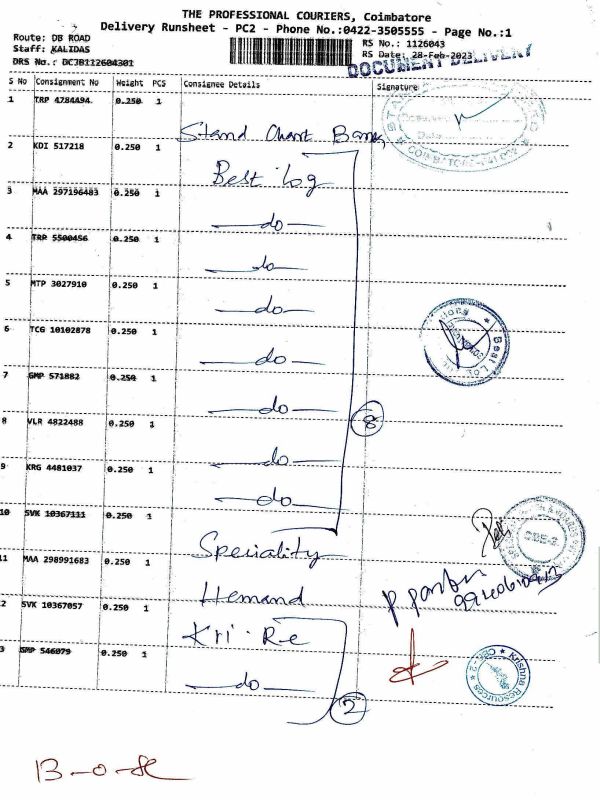 THE PROFESSIONAL COURIERS, Coimbatore
Delivery Runsheet - PC2 - Phone No.:0422-3505555 - Page No.:1
Route: DB ROAD
RS No.: 1126043
Staff: KALIDAS
RS Date: 28-Feb-2023
DRS No.: DC3B112604301
DOCUMENT DELIVERY
S No Consignment No Weight PCS Consignee Details Signature
1 TRP 4784494 0.250 1 Stand Chart Bank
2 KDI 517218 0.250 1 Best Log
3 MAA 297196483 0.250 1 do
4 TRP 5500456 0.250 1 do
5 MTP 3027910 0.250 1 do
6 TCG 10102878 0.250 1 do
7 GMP 571882 0.250 1 do
8 VLR 4822488 0.250 1 do
8
9 KRG 4481037 0.250 1 do
10 SVK 10367111 0.250 1 Speciality
11 MAA 298991683 0.250 1 Hemand
2 SVK 10367057 0.250 1 Kri. Re
3 GMP 546079 0.250 1 do
2
Krishna Resources * CBE-2 *